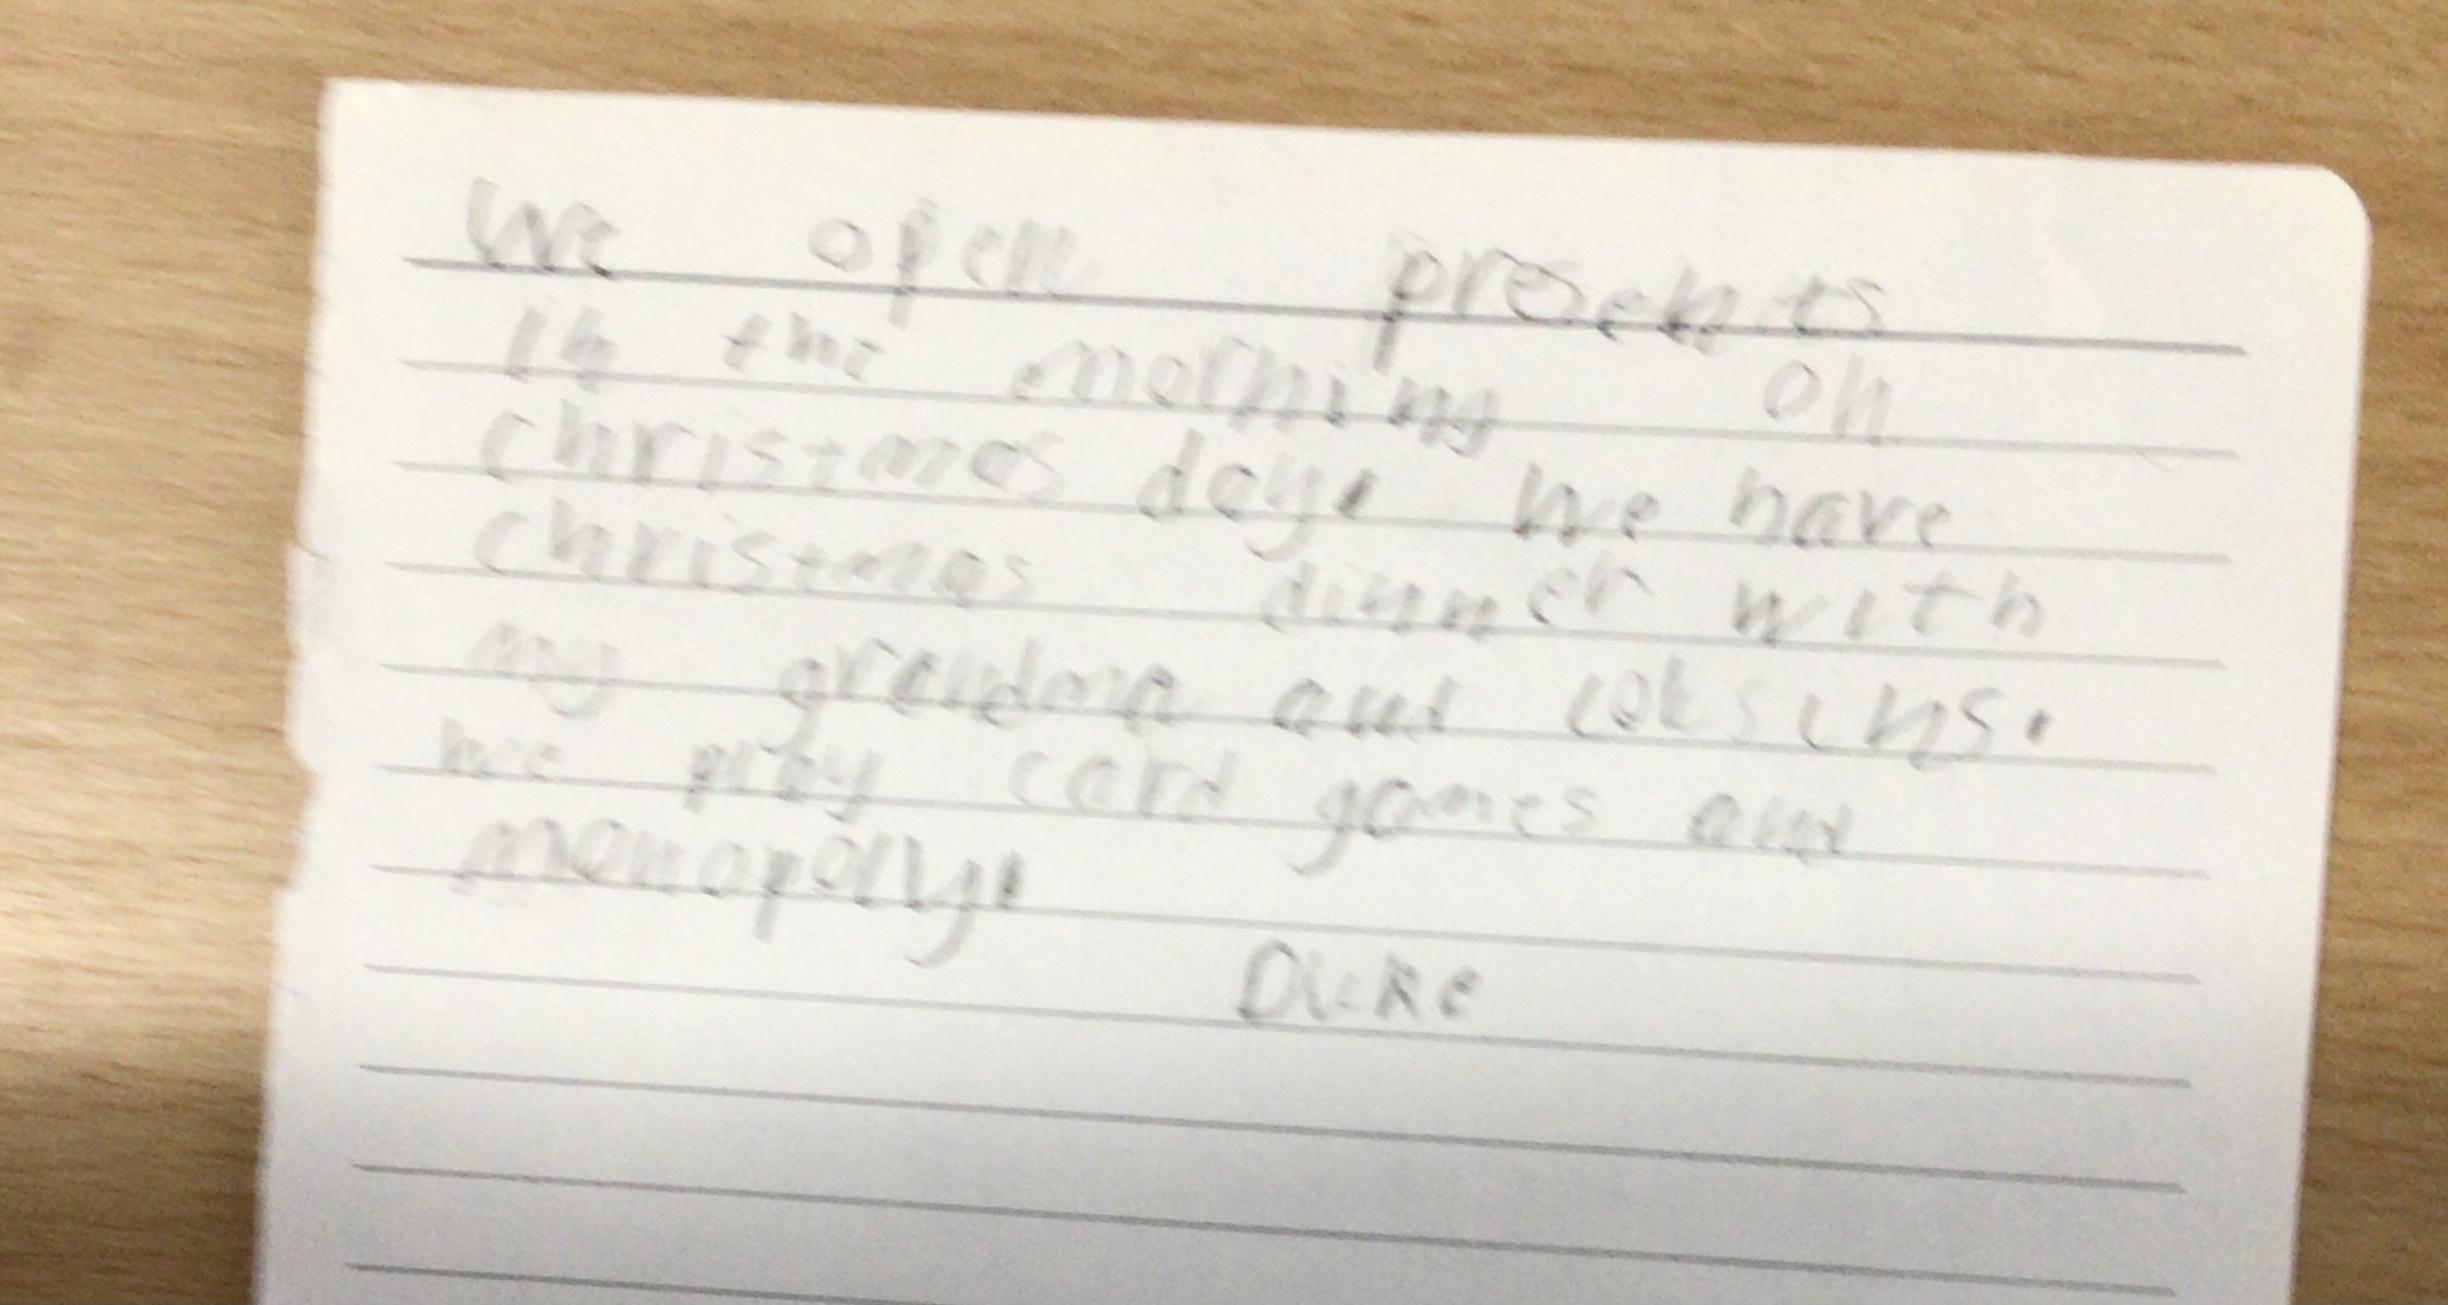 We open presents
in the morning on
christmas day. We have
christmas dinner with
my grandma and cousins.
we play card games and
monopoly.
Duke